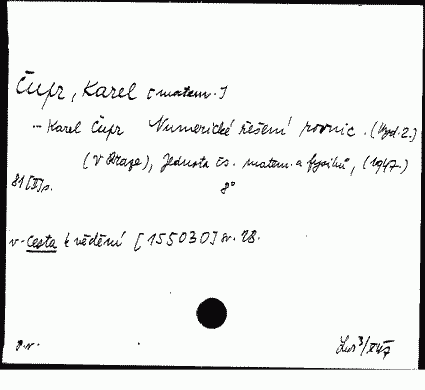 Čupr, Karel [matem.]
- Karel Čupr Numerické řešení rovnic. (Vyd. 2.)
(V Praze), Jednota čs. matem. a fysiků, (1947.)
81 [II] s. 8°
v - Cesta k vědění [155030] sv. 28.